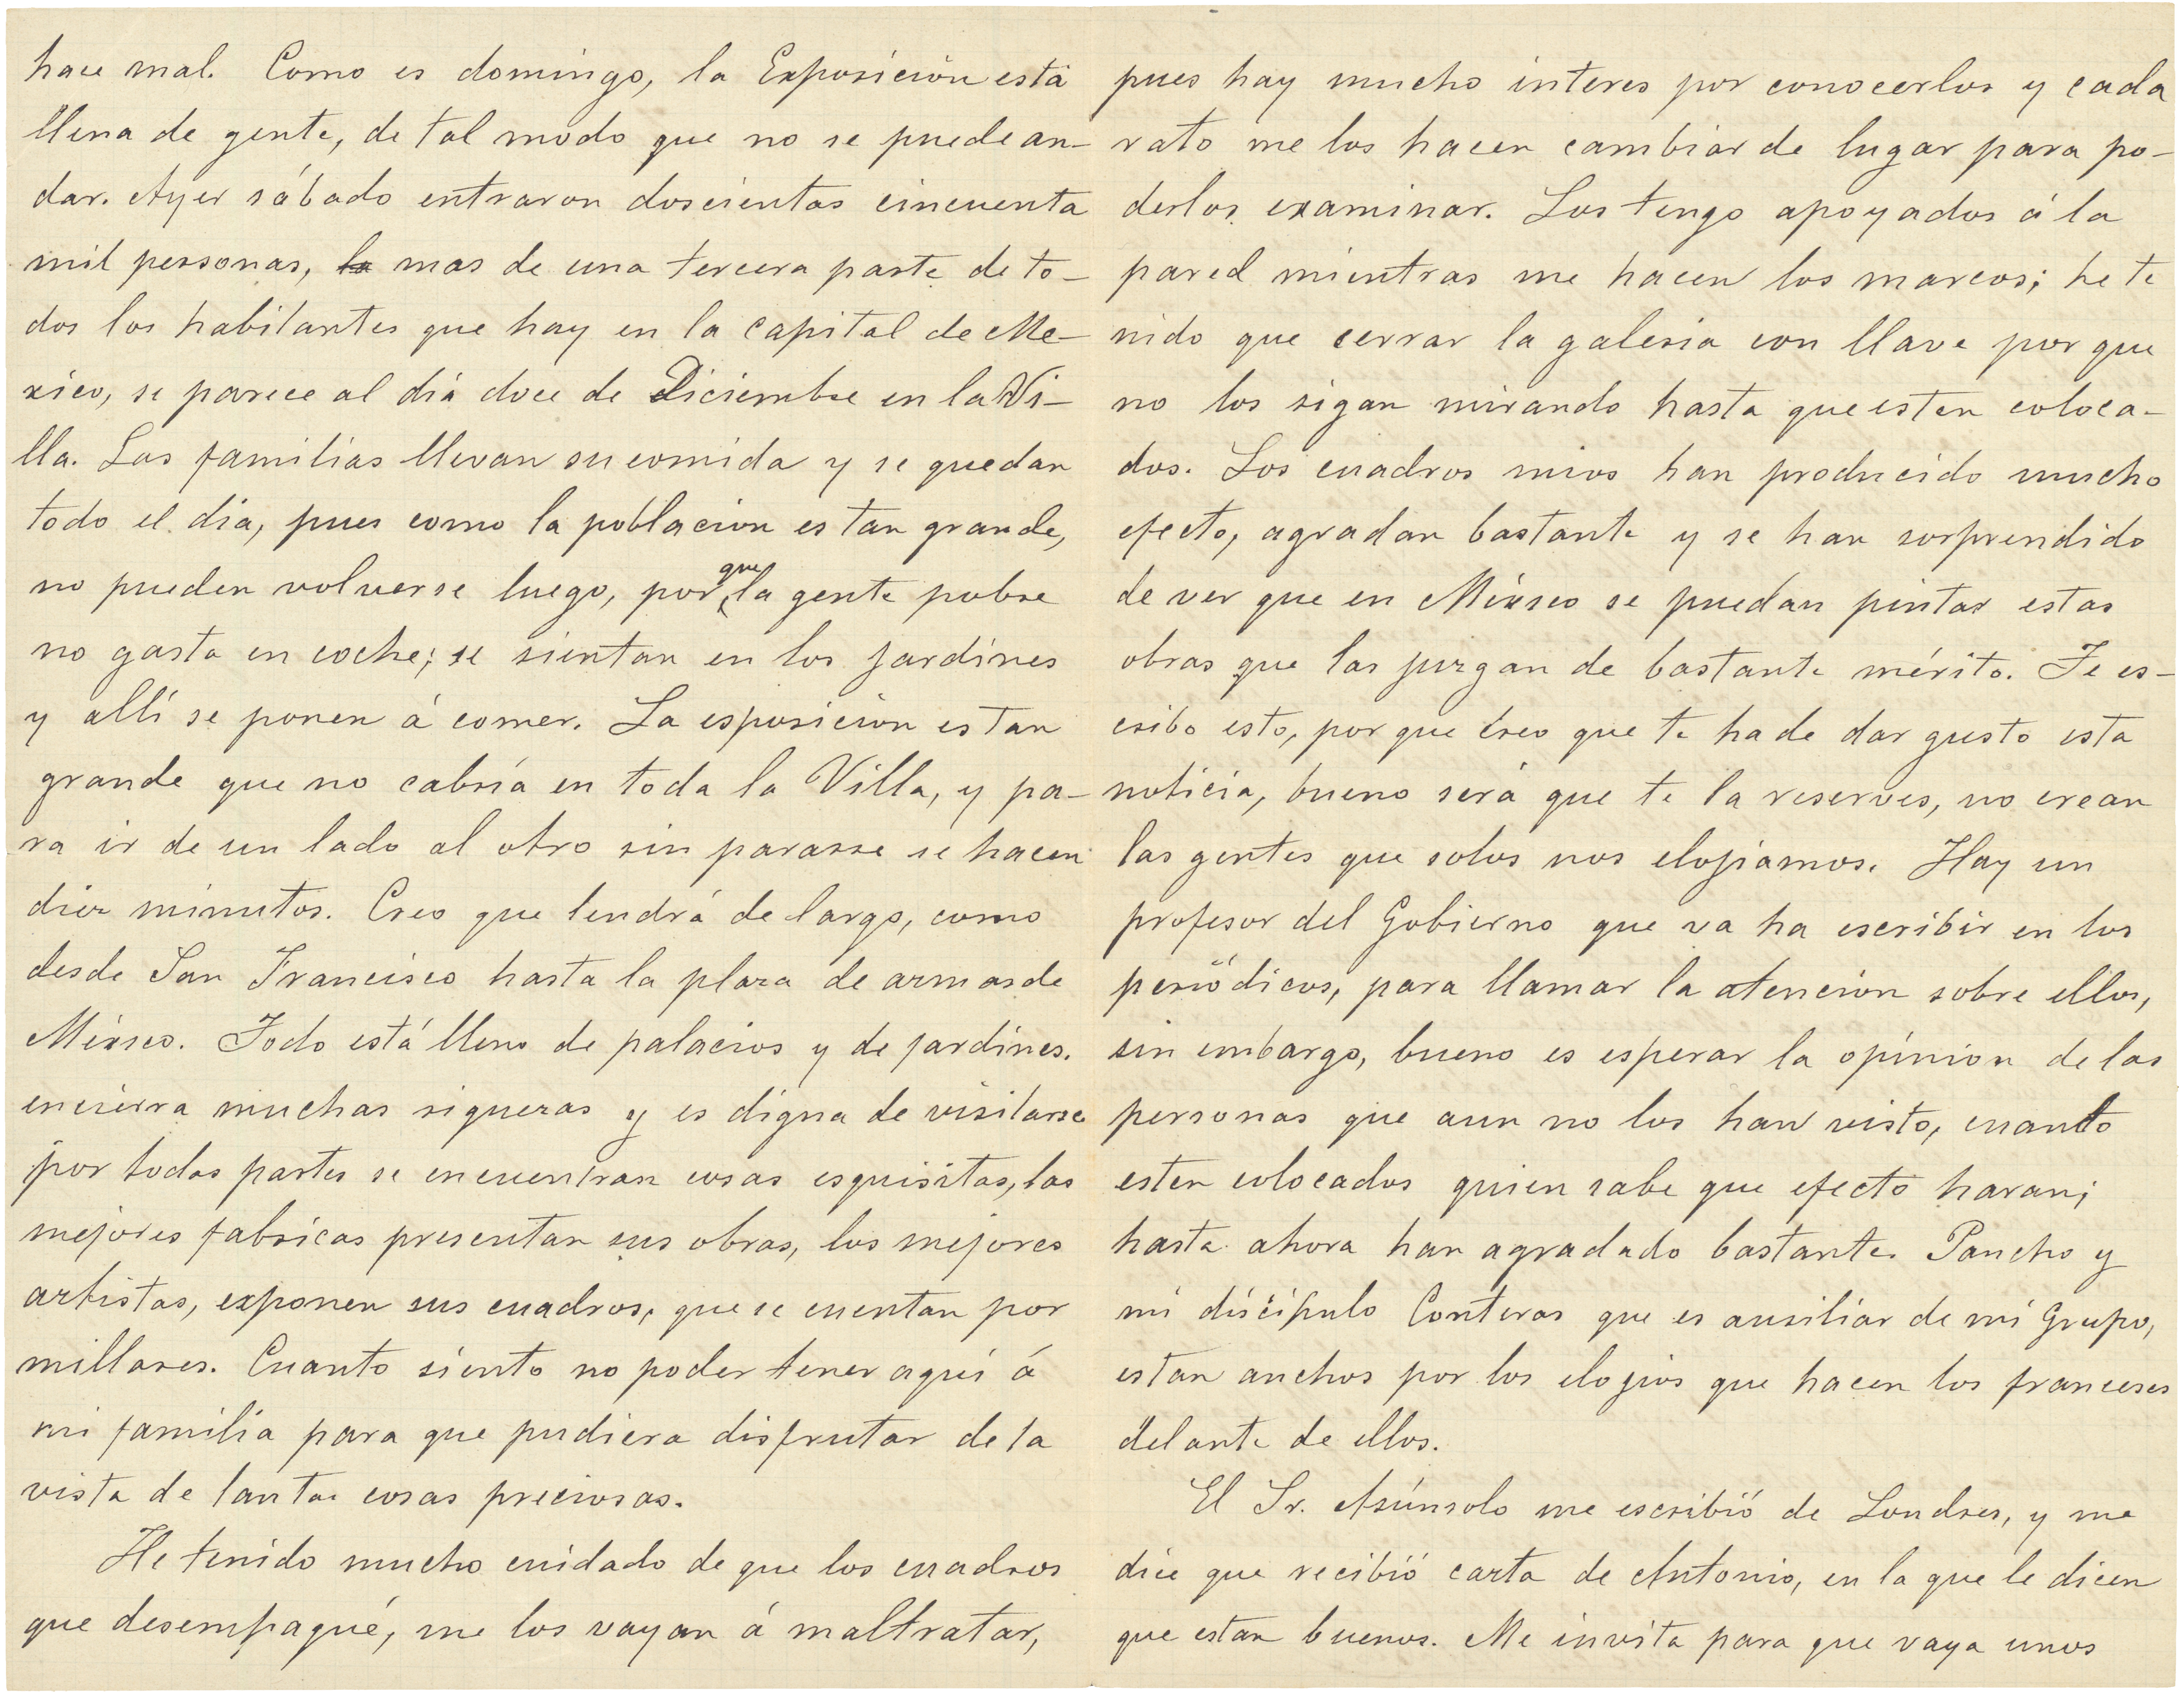 hace mal. Como es domingo, la Exposición está
llena de gente, de tal modo que no se puede an-
dar. Ayer sábado entraron doscientas cincuenta
mil personas, la mas de una tercera parte de to-
dos los habitantes que hay en la capital de Me-
xico, se parece al dia doce de Diciembre en la Vi-
lla. Las familias llevan su comida y se quedan
todo el dia, pues como la poblacion es tan grande,
no pueden volverse luego, por que la gente pobre
no gasta en coche; se sientan en los jardines
y allí se ponen á comer. La esposicion es tan
grande que no cabría en toda la Villa, y pa-
ra ir de un lado al otro sin pararse se hacen
diez minutos. Creo que tendrá de largo, como
desde San Francisco hasta la plaza de armas de
México. Todo está lleno de palacios y de jardines.
encierra muchas riquezas y es digna de visitarse
por todas partes se encuentran cosas esquisitas, las
mejores fabricas presentan sus obras, los mejores
artistas, exponen sus cuadros, que se cuentan por
millares. Cuanto siento no poder tener aquí á
mi familia para que pudiera disfrutar de la
vista de tantas cosas preciosas.
He tenido mucho cuidado de que los cuadros
que desempaqué, me los vayan á maltratar,
pues hay mucho interes por conocerlos y cada
rato me los hacen cambiar de lugar para po-
derlos examinar. Los tengo apoyados á la
pared mientras me hacen los marcos; he te
nido que cerrar la galeria con llave por que
no los sigan mirando hasta que esten coloca-
dos. Los cuadros mios han producido mucho
efecto, agradan bastante y se han sorprendido
de ver que en México se puedan pintar estas
obras que las juzgan de bastante mérito. Te es-
cribo esto, por que creo que te ha de dar gusto esta
noticia, bueno será que te la reserves, no crean
las gentes que solos nos elojiamos. Hay un
profesor del Gobierno que va ha escribir en los
periódicos, para llamar la atencion sobre ellos,
sin embargo, bueno es esperar la opinion de las
personas que aun no los han visto, cuando
esten colocados quien sabe que efecto haran;
hasta ahora han agradado bastante. Pancho y
mi discípulo Conteras que es ausiliar de mi Grupo,
estan anchos por los elojios que hacen los franceses
delante de ellos.
El Sr. Asúnsolo me escribió de Londres, y me
dice que recibió carta de Antonio, en la que le dicen
que estan buenos. Me invita para que vaya unos